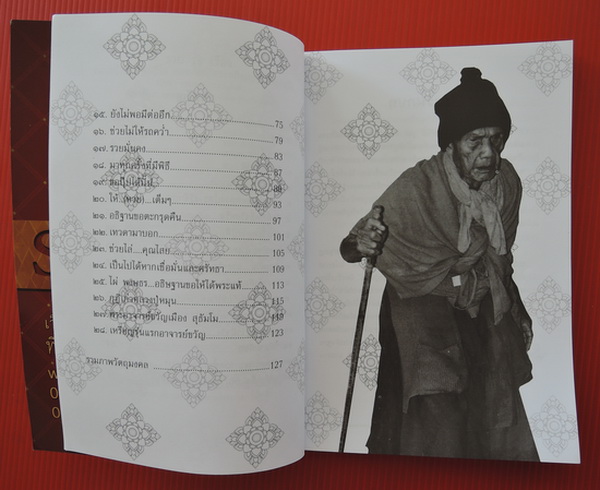 ๑๕. ยังไม่พอมีต่ออีก 75
๑๖. ช่วยไม่ให้รถคว่ำ 79
๑๗. รวยมั่นคง 83
๑๘. มาทุกครั้งที่มีพิธี 87
๑๙.
๒๐. ให้ (หวย)...เต็มๆ 93
๒๑. อธิฐานขอตะกรุดคืน 97
๒๒. เทวดามาบอก 101
๒๓. ช่วยไล่...คุณไสย 105
๒๔. เป็นไปได้หากเชื่อมั่นและศรัทธา 109
๒๕. ไม่ พุทเธร..อธิษฐานขอให้ได้พระแท้ 113
๒๖. กุฏิเก่าหลวงปู่หมุน 115
๒๗. พระอาจารย์ขวัญเมือง สุธัมโม
๒๘. เหรียญรุ่นแรกอาจารย์ขวัญ 123
รวมภาพวัตถุมงคล 127